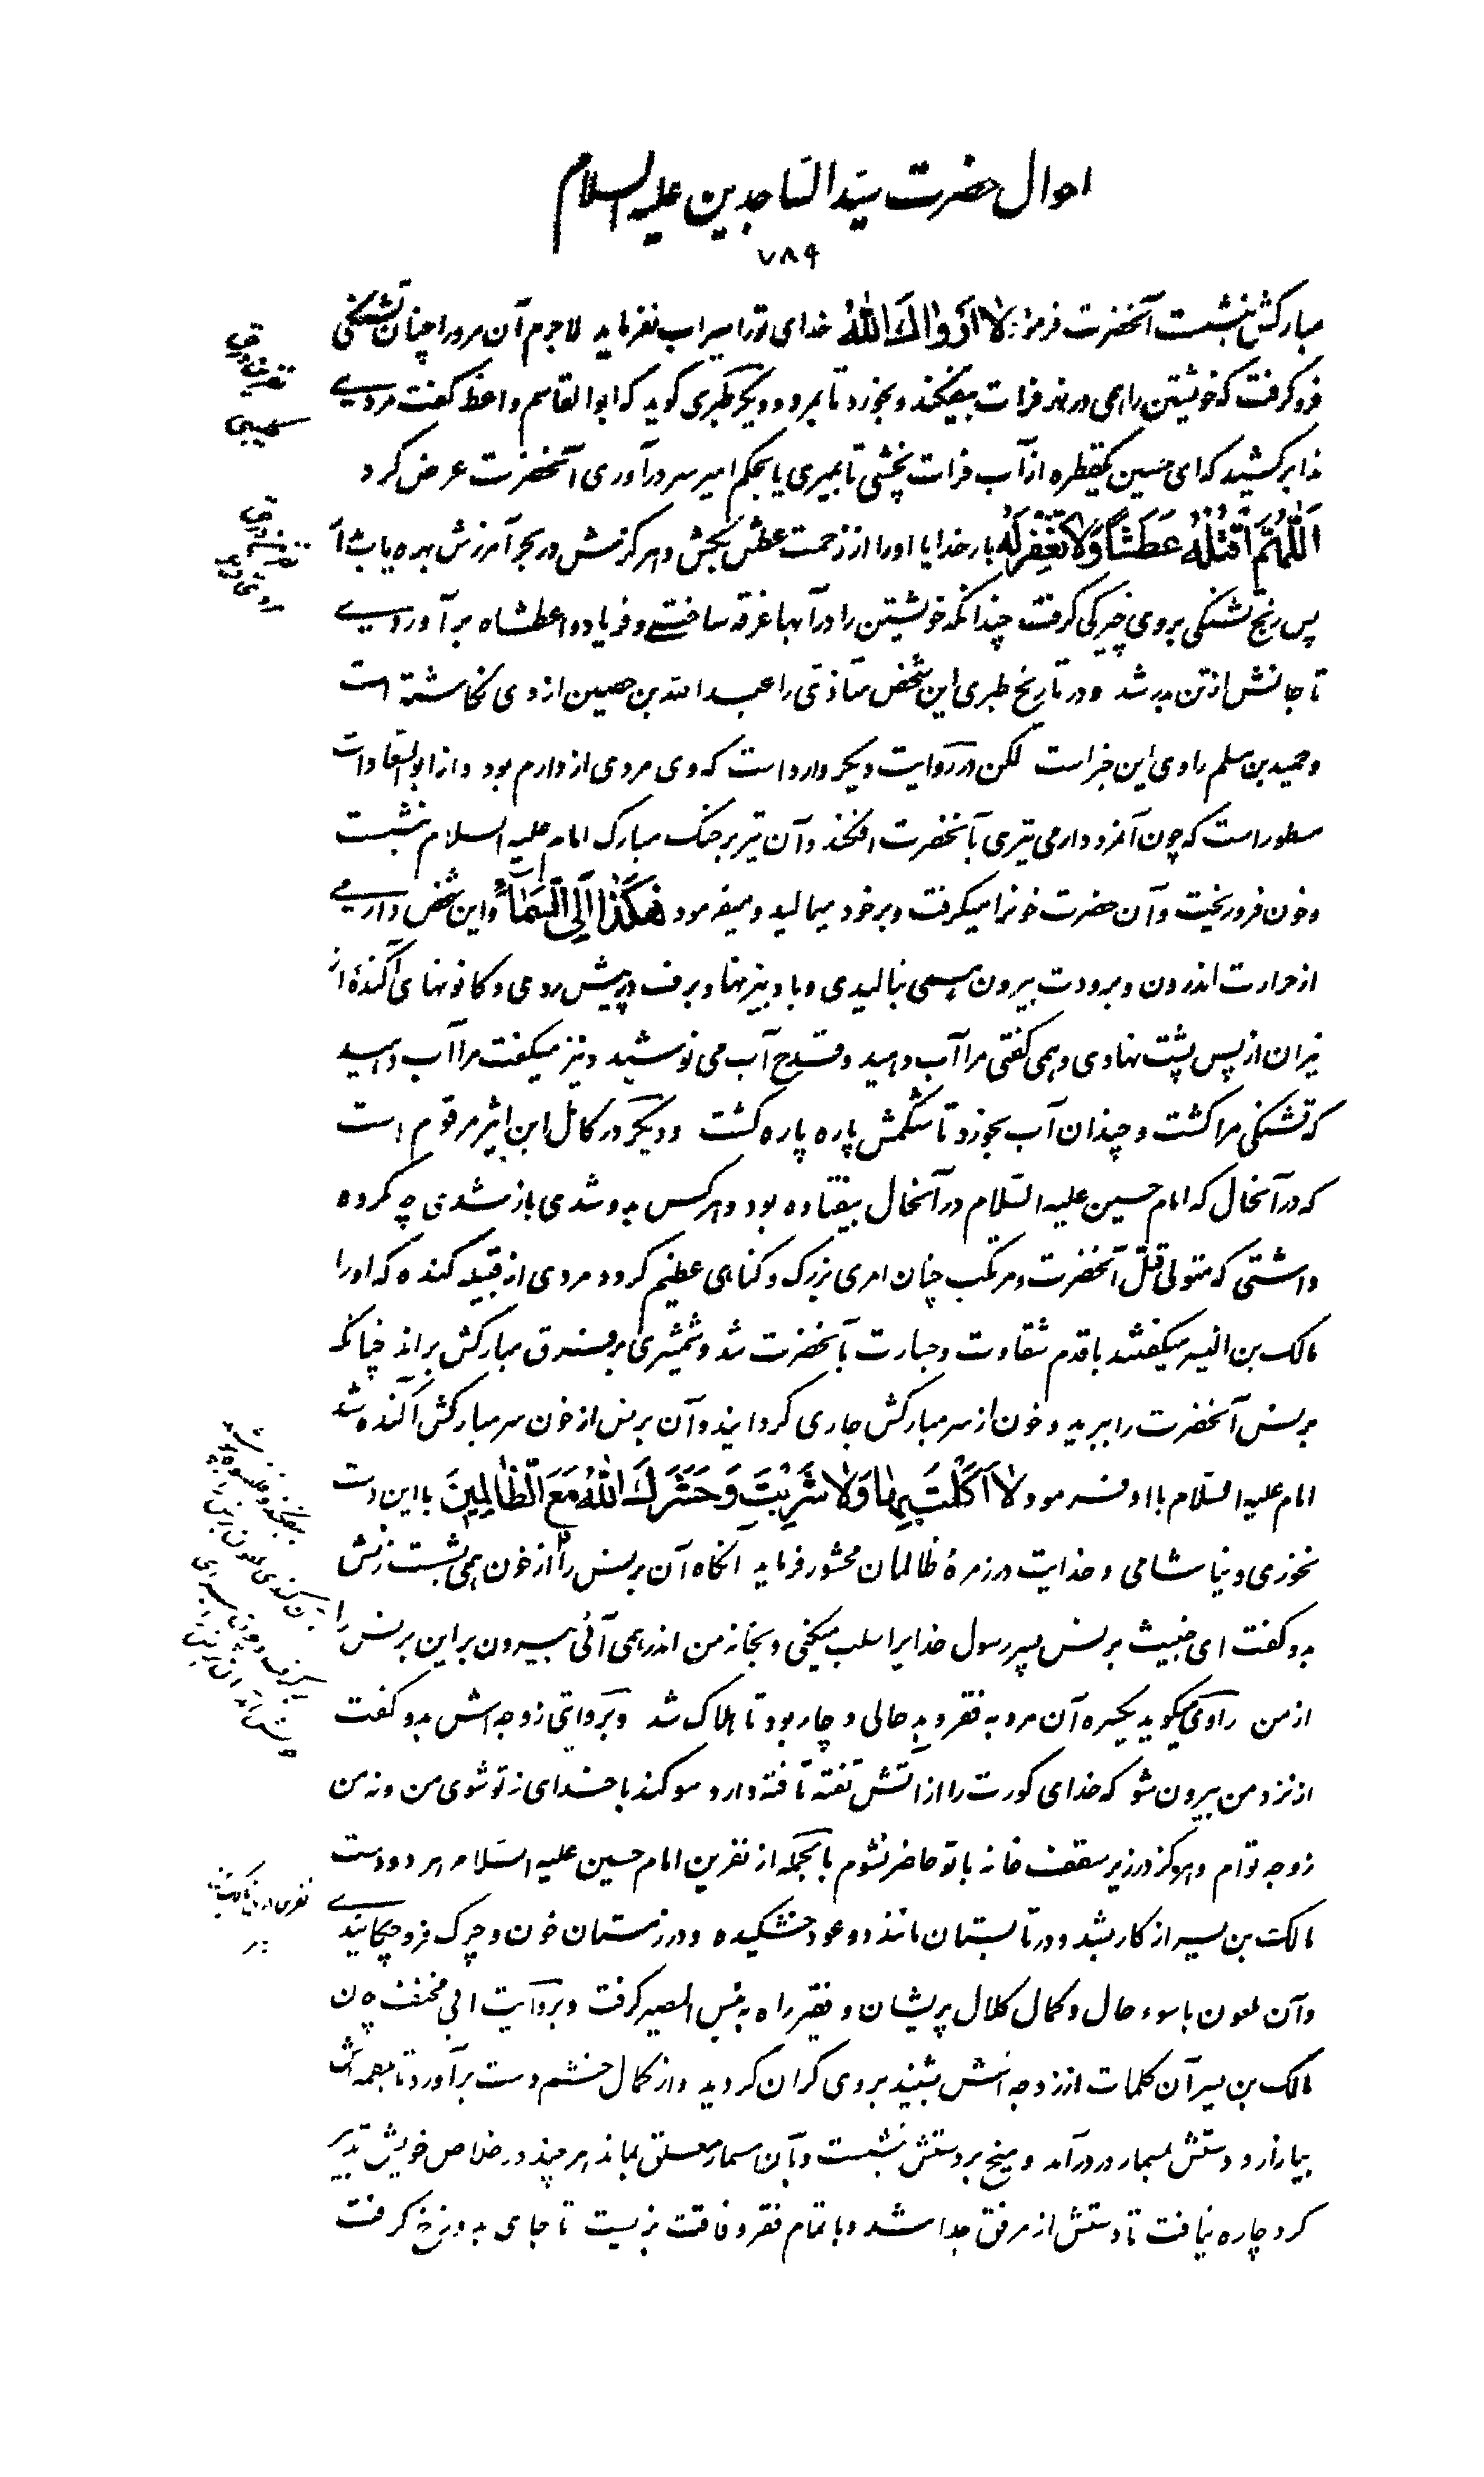 احوال حضرت سیّد السّاجدین علیه السلام
۷۸۹
مبارکش بنشست آنحضرت فرمود لَا اَرْوَاكَ اللّٰهُ خدای تو را سیراب نفرماید لاجرم آن مرد را چنان تشنگی
فرو گرفت که خویشتن را همی در نهر فرات بیفکند و بخورد تا بمرد و دیگر طبری گوید که ابو القاسم واعظ گفت مردی
ندا برکشید که ای حسین یکقطره از آب فرات نچشی تا بمیری یا بحکم امیر سر در آوری آنحضرت عرض کرد
اَللّٰهُمَّ اقْتُلْهُ عَطَشًا وَلَا تَغْفِرْ لَهُ بار خدایا او را از زحمت عطش بکش و هرگزش در بحر آمرزش بهره یاب
پس رنج تشنگی بر وی چیرگی گرفت چندانکه خویشتن را در آبها غرقه ساختی و فریاد واعطشاه بر آوردی
تا جانش از تن بدر شد و در تاریخ طبری این شخص متأذی را عبد الله بن حصین ازدی نگاشته است
و حمید بن مسلم راوی این خبر است لکن در روایت دیگر وارد است که وی مردی از دارم بود و از
مسطور است که چون آنمرد دارمی تیری بآنحضرت افکند و آن تیر بر حنک مبارک امام علیه السلام بنشست
و خون فرو ریخت و آن حضرت خونرا میگرفت و بر خود میمالید و میفرمود هٰكَذَا اِلَى السَّمَاءِ و این شخص دارمی
از حرارت اندرون و برودت بیرون همی بنالیدی و باد بیزنها و برف در پیش روی و کانونهای آکندهٔ از
نیران از پس پشت نهادی و همی گفتی مرا آب دهید و قدح آب می نوشید و نیز میگفت مرا آب دهید
که تشنگی مرا کشت و چندان آب بخورد تا شکمش پاره پاره گشت و دیگر در کامل ابن اثیر مرقوم است
که در آنحال که امام حسین علیه السّلام در آنحال بیفتاده بود و هر کس بدو شدی باز شدی چه مکروه
داشتی که متولی قتل آنحضرت و مرتکب چنان امری بزرگ و گناهی عظیم گردد مردی از قبیله کنده که او را
مالک بن النسیر میگفتند با قدم شقاوت و جسارت بآنحضرت شد و شمشیری بر فرق مبارکش براند چنانکه
برنس آنحضرت را ببرید و خون از سر مبارکش جاری گردانید و آن برنس از خون سر مبارکش آکنده شد
امام علیه السّلام با او فرمود لَا اَكَلْتَ بِهَا وَلَا شَرِبْتَ وَحَشَرَكَ اللّٰهُ مَعَ الظَّالِمِينَ با این دست
نخوری و نیاشامی و خدایت در زمرهٔ ظالمان محشور فرماید آنگاه آن برنس را از خون همی بشست زنش
بدو گفت ای خبیث برنس پسر رسول خدایرا سلب میکنی و بخانه من اندر همی آئی بیرون بر این برنس را
از من راوی میگوید یکسره آن مرد به فقر و بد حالی دچار بود تا هلاک شد و بروایتی زوجه اش بدو گفت
از نزد من بیرون شو که خدای گورت را از آتش تفته تافته دارد سوگند با خدای نه تو شوی من و نه من
زوجه توام و هرگز در زیر سقف خانه با تو حاضر نشوم بالجمله از نفرین امام حسین علیه السّلام هر دو دست
مالک بن یسر از کار بشد و در تابستان مانند دو عود خشکیده و در زمستان خون و چرک فرو چکانیدی
و آن ملعون با سوء حال و کمال کلال پریشان و فقیر راه به بئس المصیر گرفت و بروایت ابی مخنف چون
مالک بن یسر آن کلمات از زوجه اش بشنید بر وی گران گردید و از کمال خشم دست برآورد تا
بیازارد دستش بمسمار در درآمد و میخ بر دستش بنشست و بآن مسمار معلق بماند هر چند در خلاص خویش تدبیر
کرد چاره نیافت تا دستش از مرفق جدا شد و با تمام فقر و فاقت بزیست تا جای به دوزخ گرفت